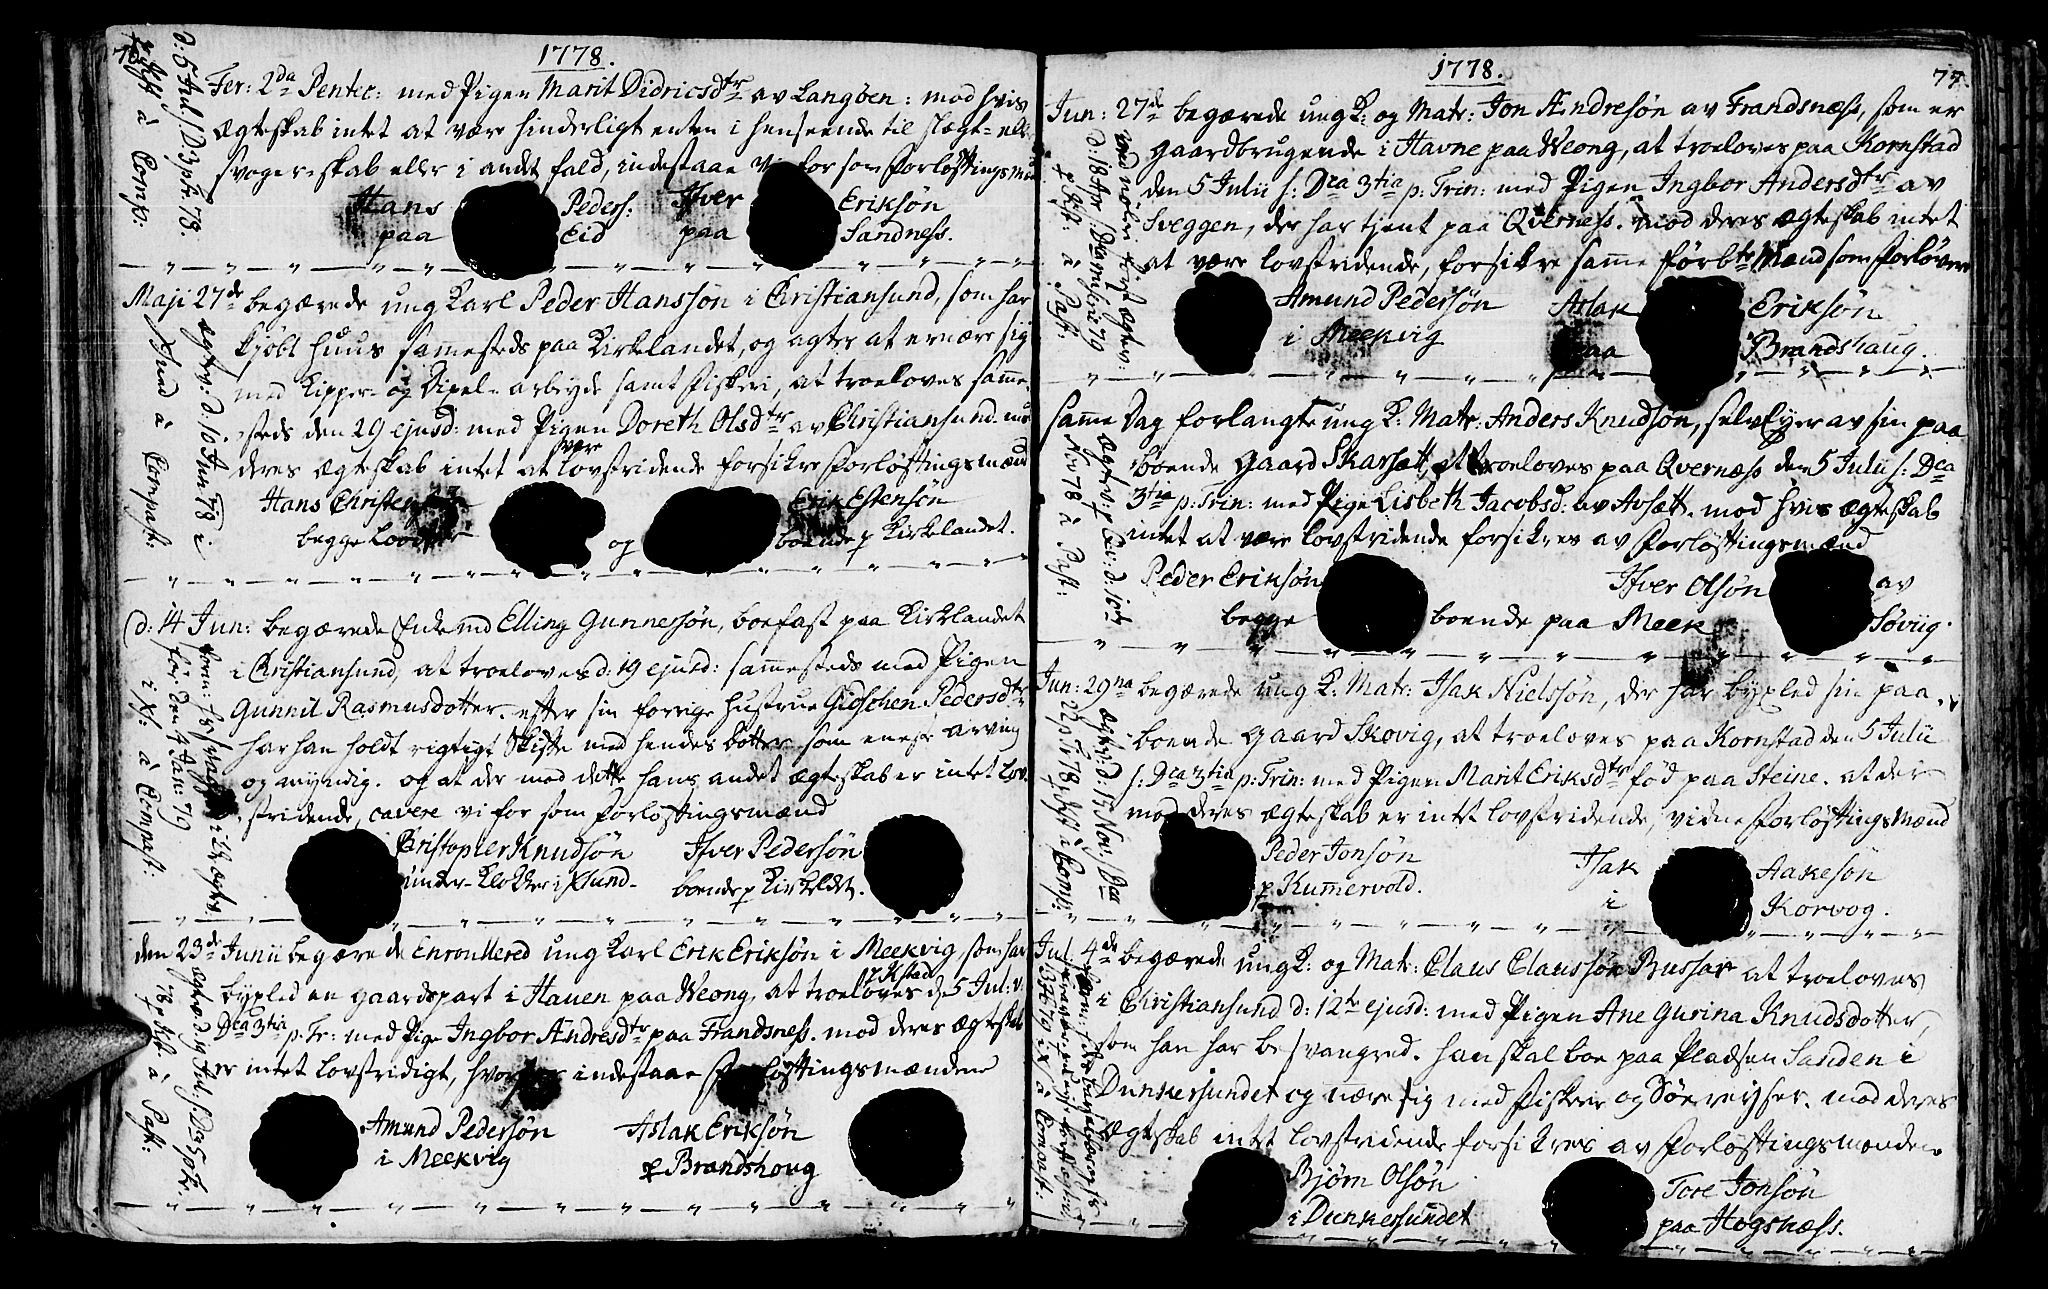 76.
1778.
Fer: 2da Pentec: med Pigen Marit Didricsdtr av Langöen: mod hvis
ægteskab intet at være hinderligt enten i henseende til slægt- elle
svogerskab eller i andet fald, indestaae vi for som Forlöftingsmænd
Hans Peders: Ifver Eriksön
paa Eid paa Sandness.
Maji 27de begærede ung Karl Peder Hanssön i Christiansund, som har
kjöbt huus samesteds paa Kirkelandet, og agter at ernære sig
med Kipper- og Dixel- arbeyde samt Fiskeri, at troeloves samme-
steds den 29 ejusd: med Pigen Doreth Olsdtr av Christiansund. mod
deres ægteskab intet at være lovstridende forsikre Forlöftingsmænd
Hans Christensön Erik Estensön
begge Loodser og boende p Kirkelandet.
d: 14 Jun: begærede Enkemd Elling Gunnersön, boefast paa Kirklandet
i Christiansund, at troeloves d: 19 ejusd: samesteds med Pigen
Gunnil Rasmusdotter. efter sin forrige hustrue Gidschen Pedersdtr
har han holdt rigtigt Skifte med hendes dotter som eneste arving
og myndig. og at der mod dette hans andet ægteskab er intet lov-
stridende, cavere vi for som Forlöftingsmænd
Christopher Knudsön Ifver Pedersön
under-Klokker i Xsund. boende p Kirkeldet.
den 23de Junii begærede Enroullered ung Karl Erik Eriksön i Meekvig som har
bypled en gaardspart i Hauen paa Weong, at troeloves p Kstad d: 5 Jul: s:
Dca 3tia p: Tr: med Pige Ingbor Andresdtr paa Frandsness. mod deres ægteskab
er intet lovstridigt, hvorfor indestaae Forlöftingsmændene
Amund Pedersön Aslak Eriksön
i Meekvig p Brandshoug
1778.
77.
Jun: 27de begærede ung K: og Matr: Jon Andresön av Frandsness, som er
gaardbrugende i Havne paa Weong, at troeloves paa Kornstad
den 5 Julii s: Dca 3tia p: Trin: med Pigen Ingbor Andersdtr av
Sveggen, der har tjent paa Qverness. mod deres ægteskab intet
at være lovstridende, forsikre samme förbte Mænd som Forlövere
Amund Pedersön Aslak Eriksön
i Meekvig paa Brandshaug.
samme Dag forlangte ung K: Matr: Anders Knudsön, selv Eyer av sin paa
boende gaard Skarsætt, at troeloves paa Qverness den 5 Julii s: Dca
3tia p: Trin: med Pige Lisbeth Jacobsd: av Avsætt. mod hvis ægteskab
intet at være lovstridende forsikres av Forlöftingsmænd
Peder Eriksön Ifver Olsön av
begge boende paa Meek Söviig.
Jun: 29na begærede ung K: Matr: Isak Nielssön, der har bypled sin paa-
boende gaard Skovig, at troeloves paa Kornstad den 5 Julii
s: Dca 3tia p: Trin: med Pigen Marit Eriksdtr föd paa Steine. at der
mod deres ægteskab er intet lovstridende, vidne Forlöftingsmænd
Peder Jonsön Isak Aakesön
p Kumervold. i Korvog.
Jul: 4de begærede ung K: og Matr: Claus Claussön Bussar at troeloves
i Christiansund d: 12te ejusd: med Pigen Ane Gurina Knudsdotter,
som han har besvangred. han skal boe paa Pladsen Sanden i
Dunkersundet og nære sig med Fiskerie og Söereyser. mod deres
ægteskab intet lovstridende forsikres av Forlöftingsmændene
Björn Olsön Tore Jonsön
i Dunkersundet paa Hogsness.